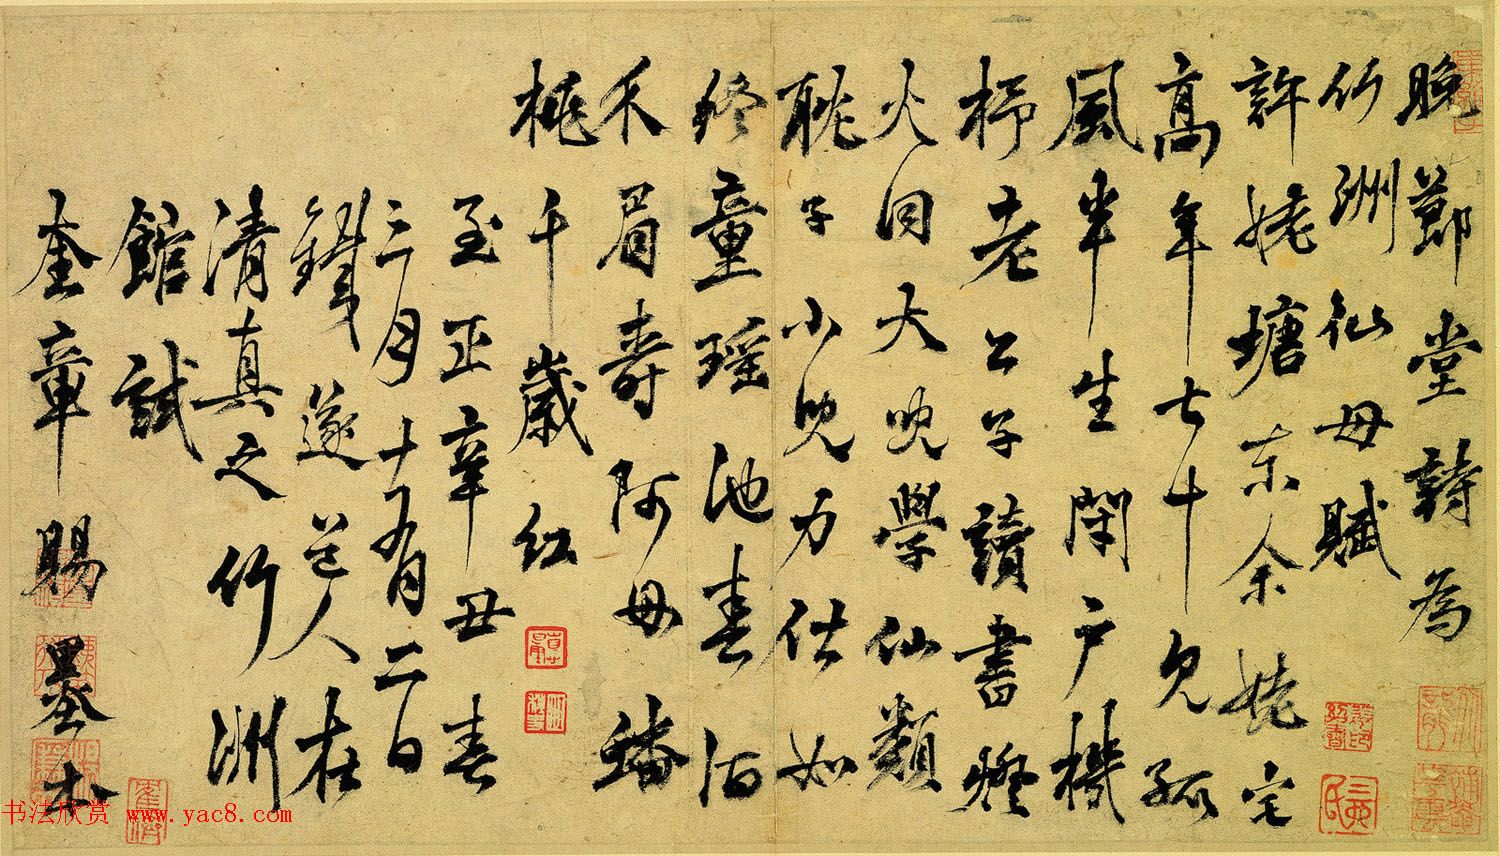 晚節堂詩為
竹洲仙母賦
許姥塘東余姥宅
高年七十見孤
風半生閉戶機
杼老公子讀書燈
火同大兒學仙類
耽子小兒力仕如
終童瑤池春酒
介眉壽阿母蟠
桃千歲紅
至正辛丑春
三月十有二日
鐵篴道人在
清真之竹洲
館試
奎章賜墨本
书法欣赏 www.yac8.com